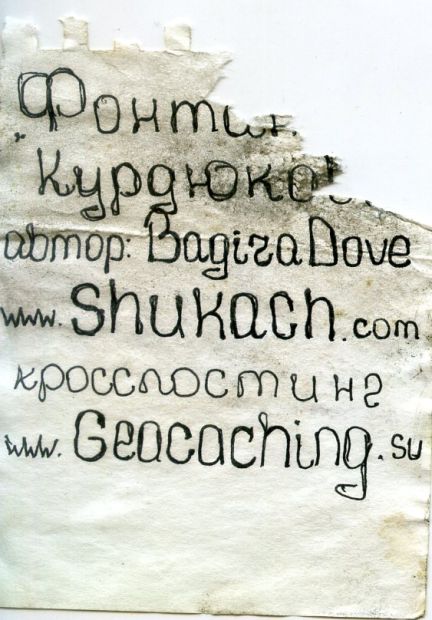 "Фонтан
Курдюков
автор: Bagira Dove
www.Shukach.com
кросспостинг
www.Geocaching.su